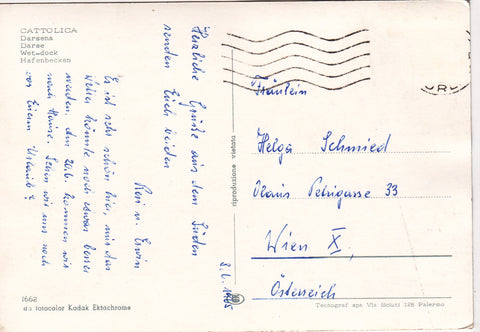 CATTOLICA
Darsena
Darse
Wet-dock
Hafenbecken
Herzliche Grüße aus dem Süden
senden Euch beiden
Resi u. Erwin
Es ist sehr schön hier, nur das
Wetter könnte noch etwas besser
werden. Am 20.6. kommen wir
nach Hause. Sehen wir uns noch
vor Eurem Urlaub?
8.6.1965
1662
da fotocolor Kodak Ektachrome
riproduzione vietata
Fräulein
Helga Schmied
Klaus Petrigasse 33
Wien X.
Österreich
Tecnograf spa Via Sciuti 128 Palermo